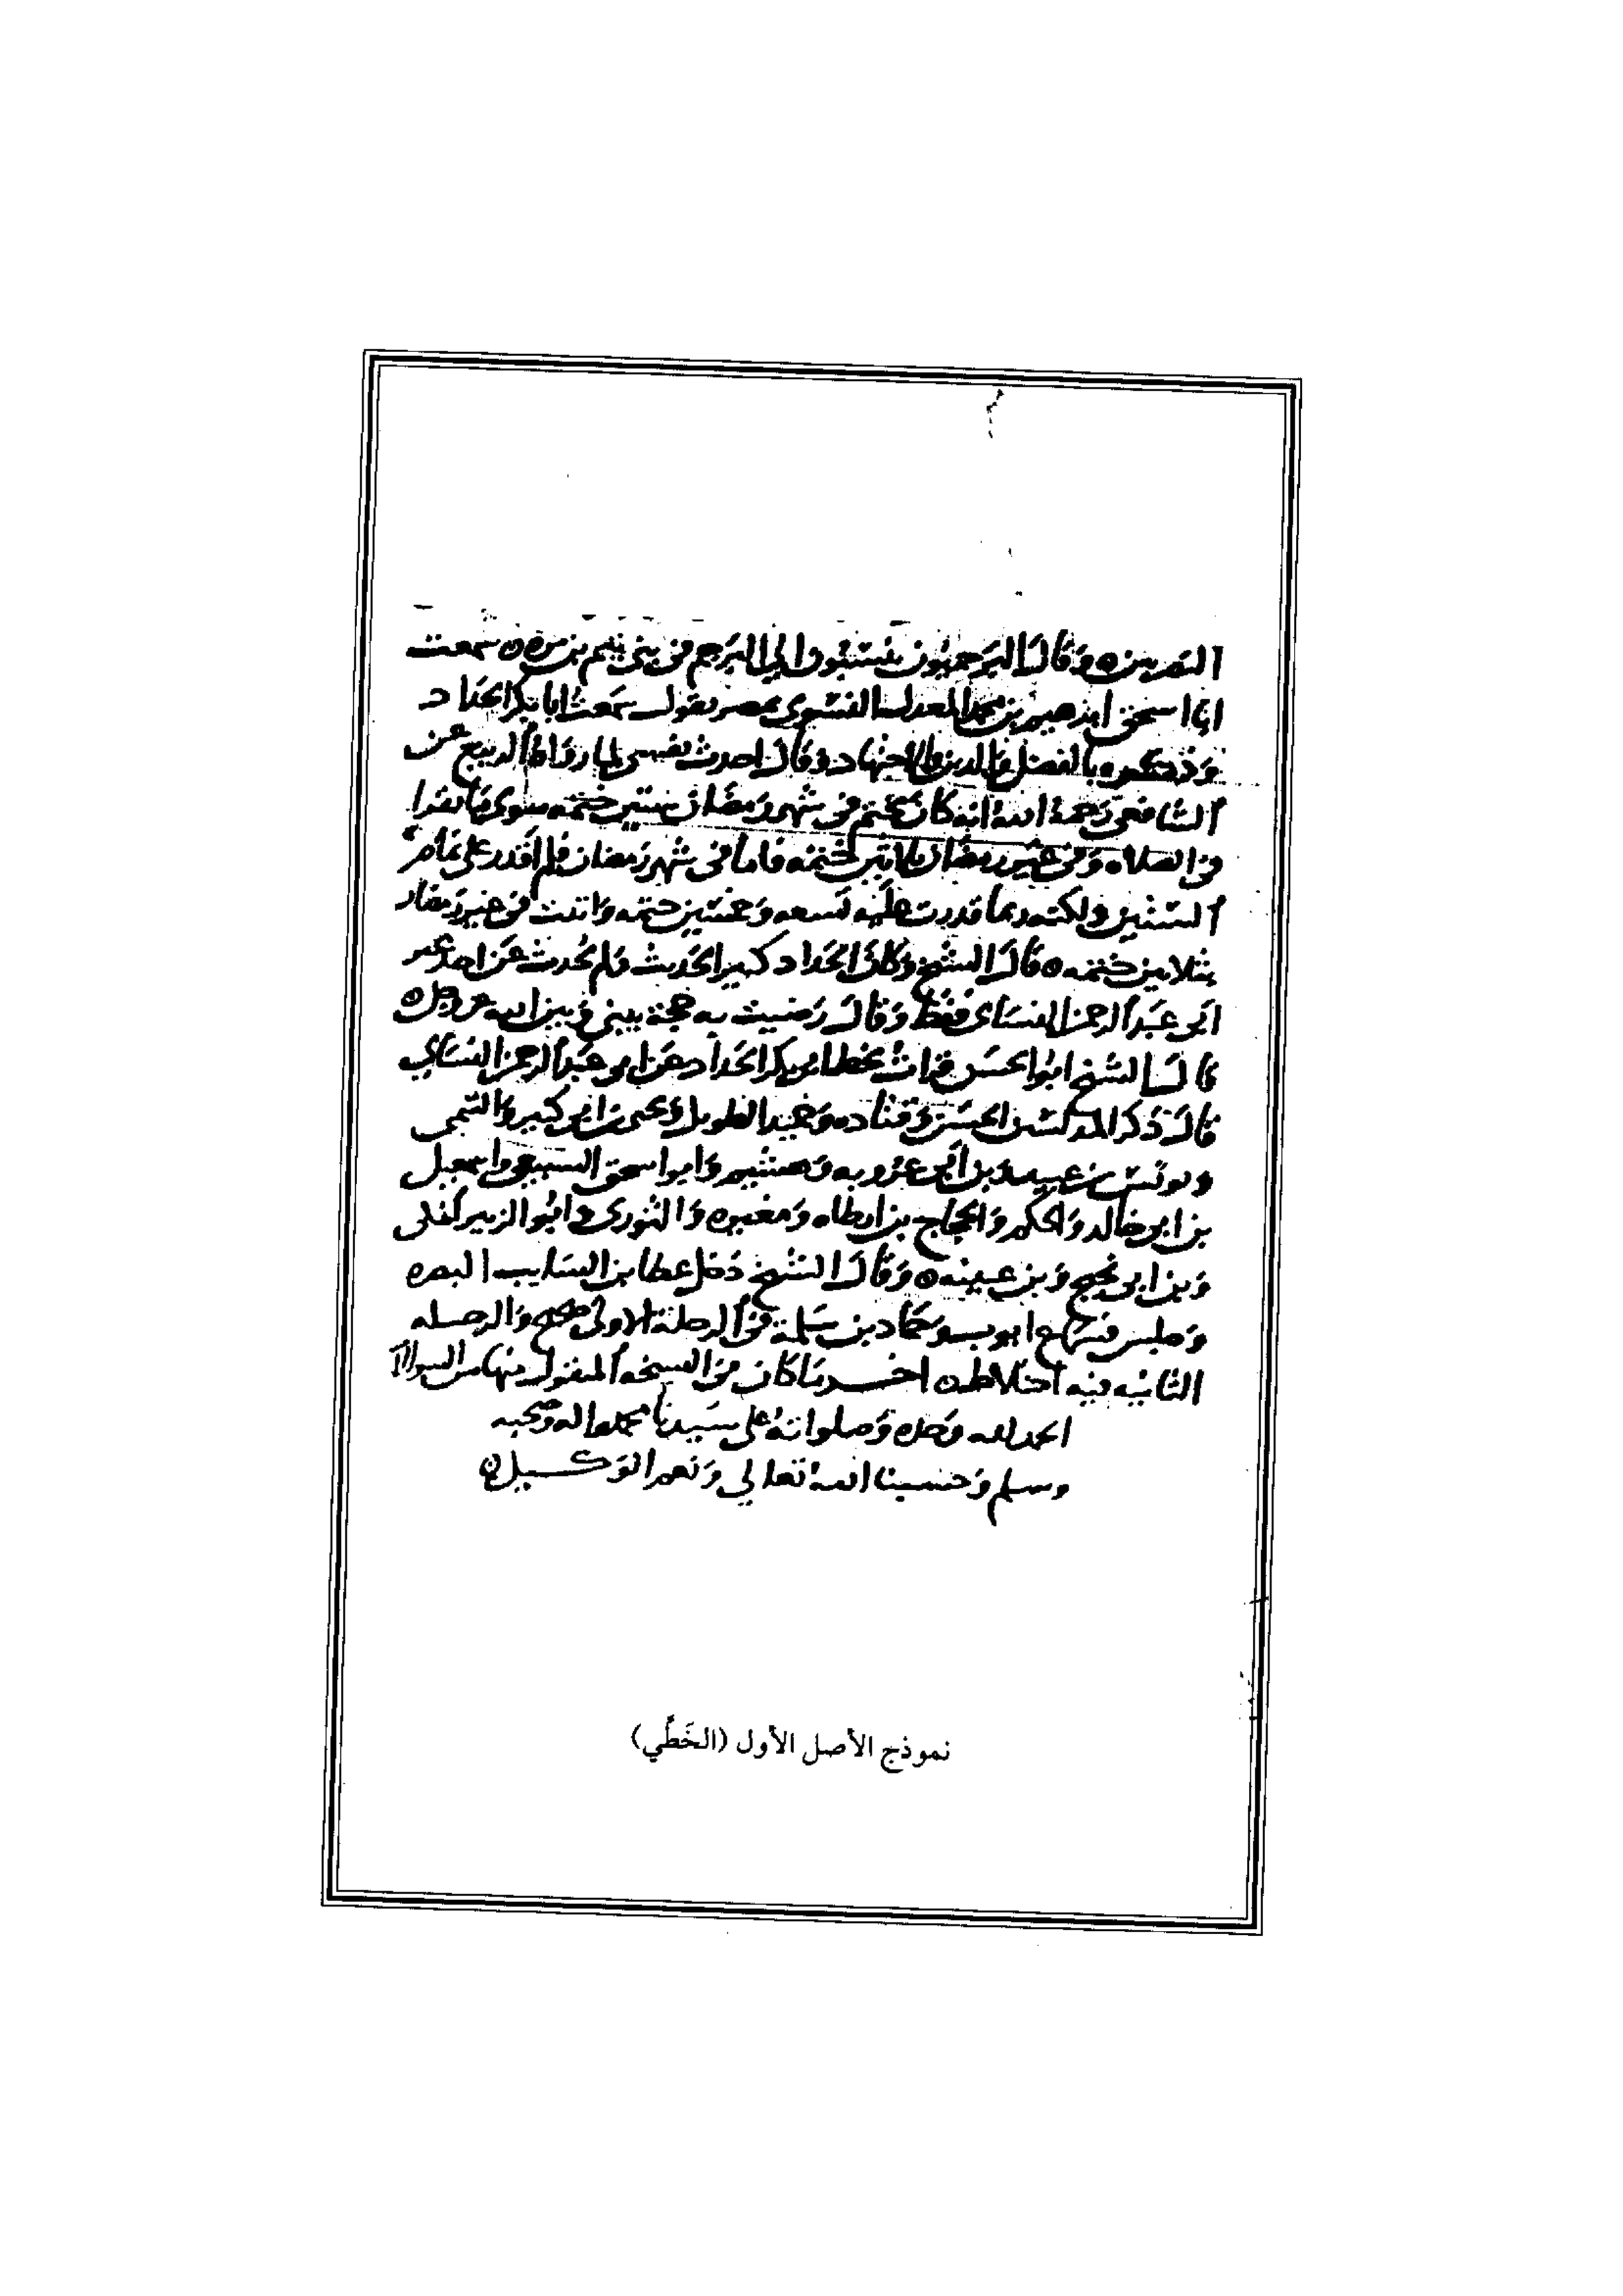 وقال البرجميون ينتسبون إلى البرجم في بني تيم بن مره سمعت
ابا اسحق ابرهيم بن محمد المعدل النسوي بمصر يقول سمعت ابا بكر الحداد
وذكره بالفضل والدين والاجتهاد وقال احدث نفسي لما رواه الربيع عن
الشافعي رحمه الله انه كان يختم في شهر رمضان ستين ختمه سوى ما يقرا
في الصلاه وفي غير رمضان ثلاثين ختمه فاما في شهر رمضان فلم اقدر على تمام
الستين ولكنه ربما قدرت عليه تسعه وخمسين ختمه واتيت في غير رمضان
بثلاثين ختمه ه قال الشيخ وكان الحداد كثير الحديث ولم يحدث عن احد غير
ابي عبد الرحمن النساي فقط وقال رضيت به حجة بيني وبين الله عز وجل ه
قال الشيخ ابو الحسن قرات بخط ابي بكر الحداد عن ابي عبد الرحمن النساي
قال ذكر المدلسين الحسن وقتاده وحميد الطويل ويحيى بن ابي كثير والتيمي
ويونس بن عبيد وبن ابي عروبه وهشيم وابو اسحق السبيعي واسمعيل
بن ابي خالد والحكم والحجاج بن ارطاه ومغيره والثوري وابو الزبير المكي
وبن ابي نجيح وبن عيينه ه وقال الشيخ دخل عطا بن السايب البصره
وجلس فسماع ايوب وحماد بن سلمة في الرحلة الاولى صحيح والرحله
الثانيه فيه اختلاط ه اخر ما كان في النسخه المنقول منها من السوالات
الحمد لله وحده وصلواته على سيدنا محمد واله وصحبه
وسلم وحسبنا الله تعالي ونعم الوكيل ه
نموذج الأصل الأول (الخَطِّي)